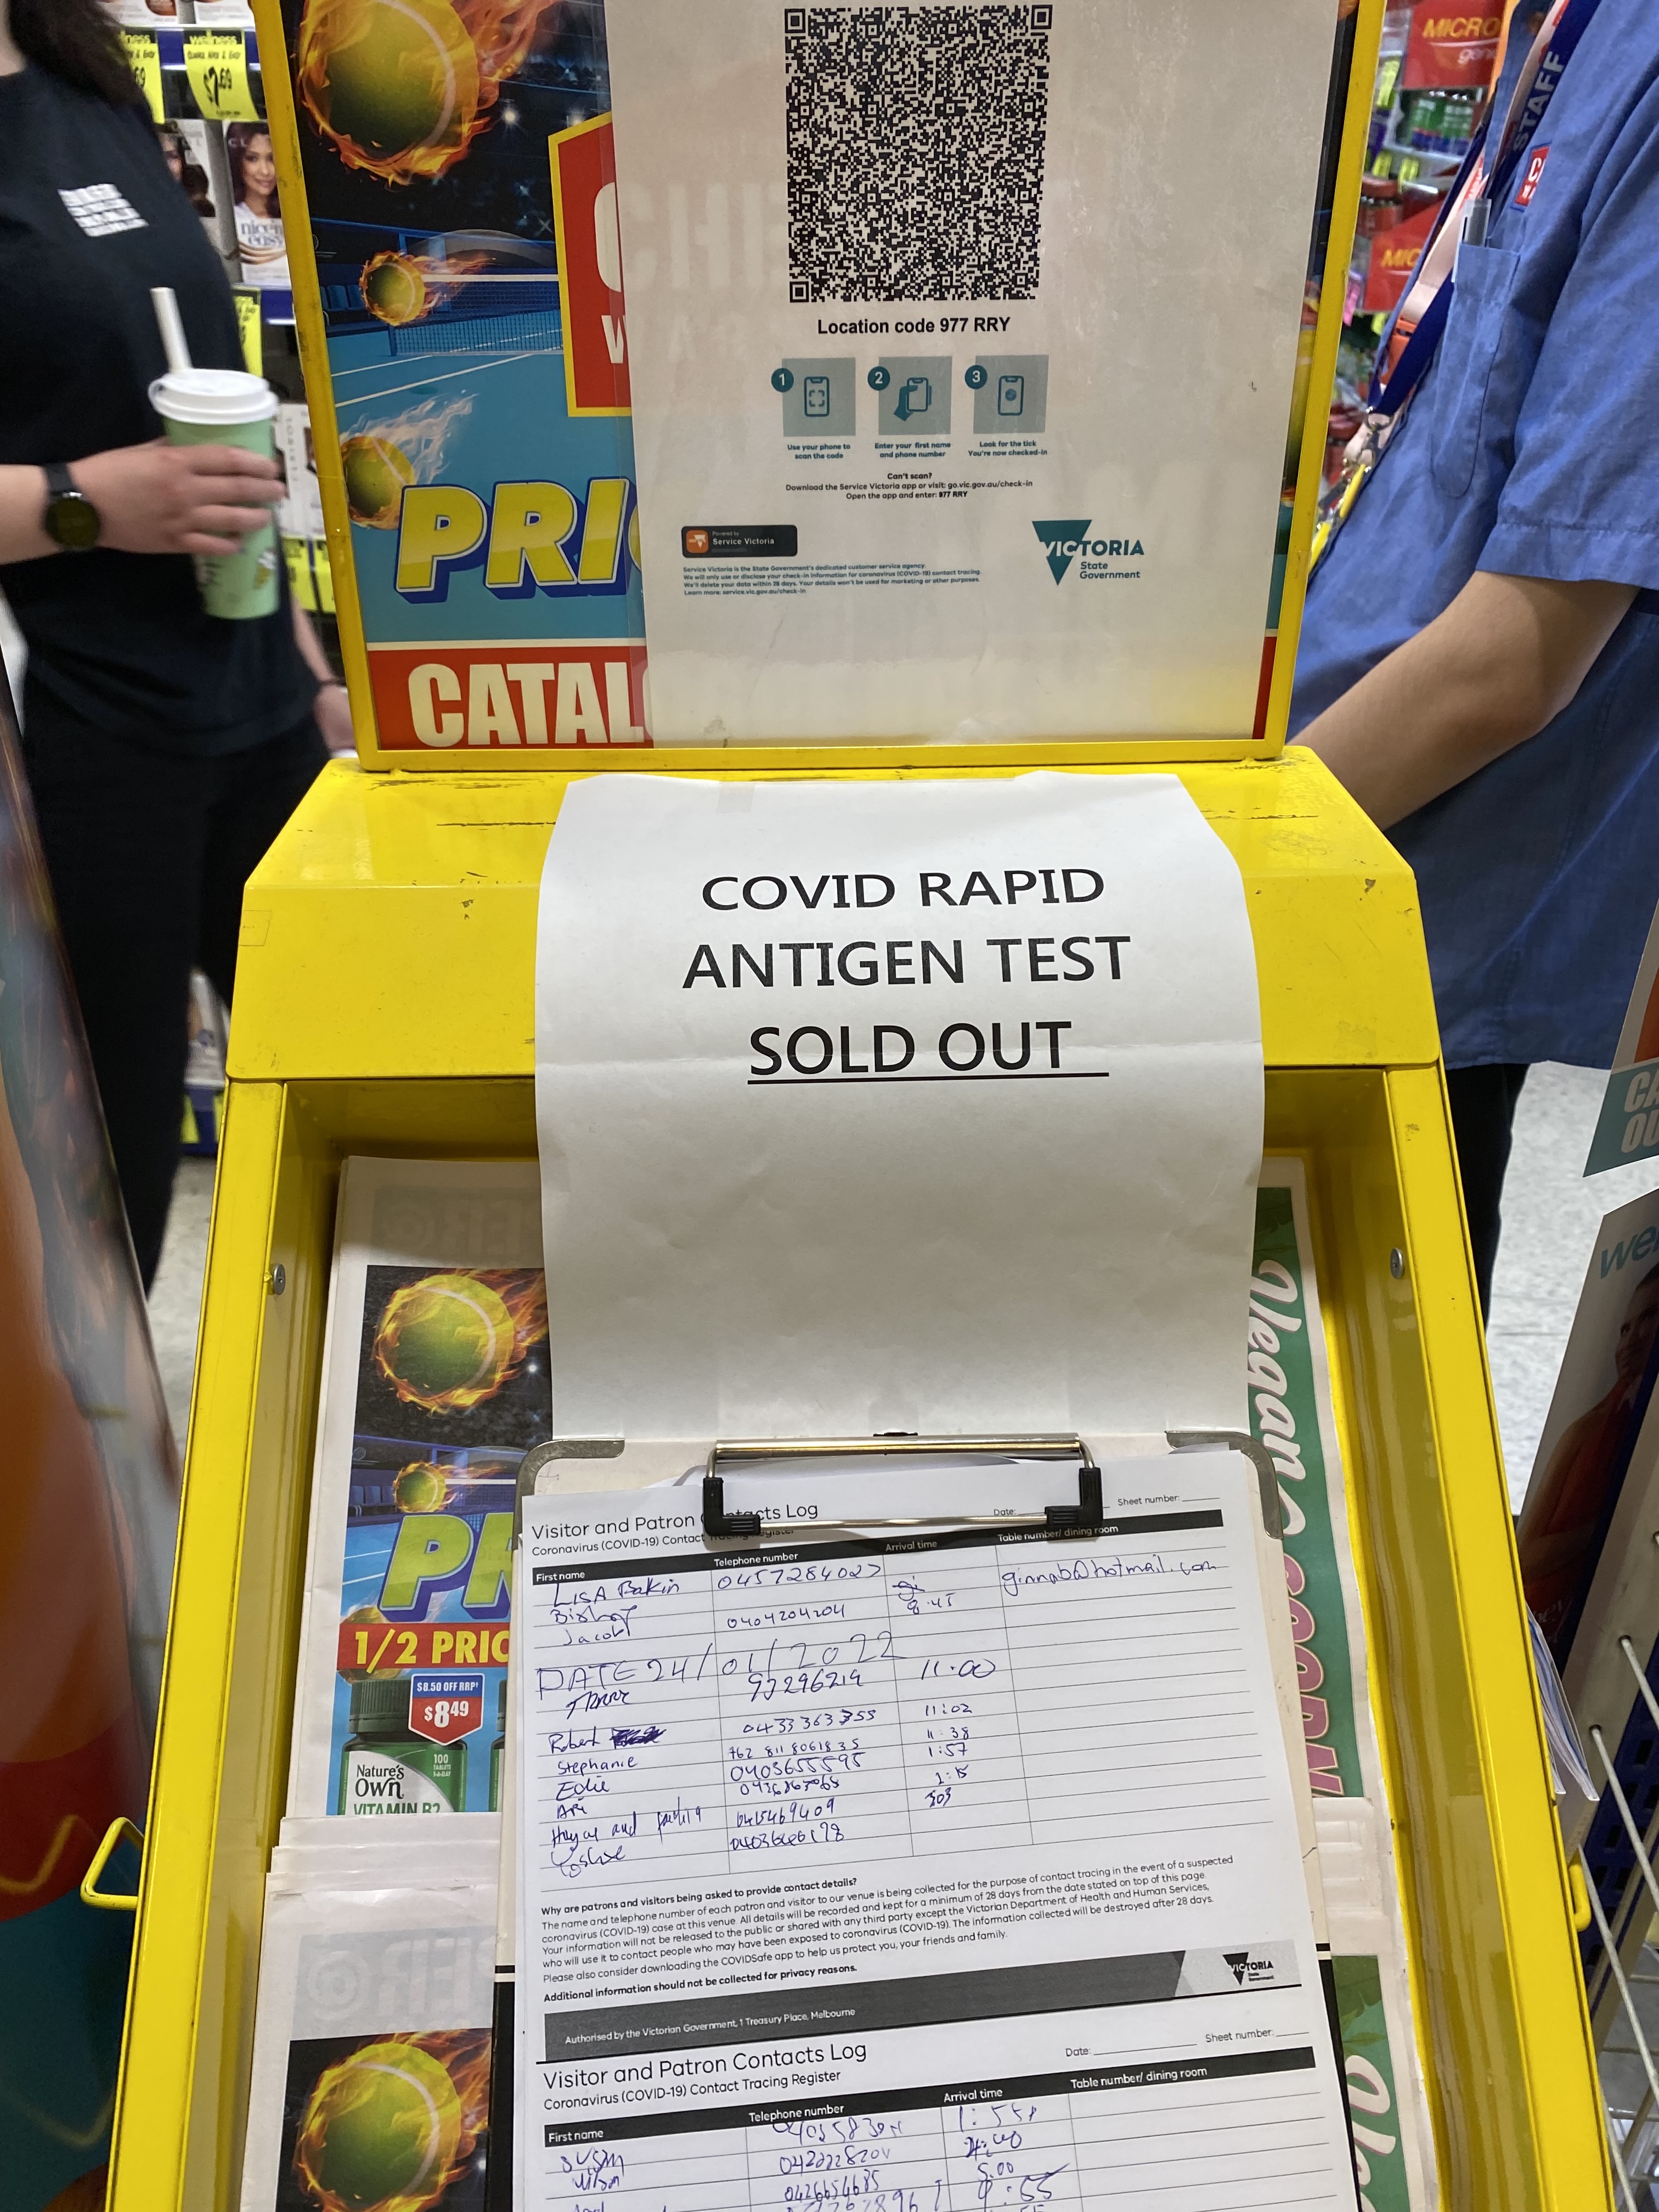 wellness
$7.69
MICRO
STAFF
nice'n
easy
Location code 977 RRY
1
2
3
Use your phone to
scan the code
Enter your first name
and phone number
Look for the tick
You're now checked-in
Can't scan?
Download the Service Victoria app or visit: go.vic.gov.au/check-in
Open the app and enter: 977 RRY
Powered by
Service Victoria
VICTORIA
State
Government
Service Victoria is the State Government's dedicated customer service agency.
We will only use or disclose your check-in information for coronavirus (COVID-19) contact tracing.
We'll delete your data within 28 days. Your details won't be used for marketing or other purposes.
Learn more: service.vic.gov.au/check-in
PRI
CATAL
COVID RAPID
ANTIGEN TEST
SOLD OUT
Vegan
PR
1/2 PRIC
$8.50 OFF RRP!
$8.49
Nature's
Own
100
TABLETS
VITAMIN B2
Visitor and Patron Contacts Log
Date:
Sheet number:
Coronavirus (COVID-19) Contact Tracing Register
First name
Telephone number
Arrival time
Table number/ dining room
LISA Bakin
0457284027
ginnab@hotmail.com
Jacob
0404204204
8.45
DATE 24/01/2022
97296219
11.00
Robert
0433363355
11:02
Stephanie
+62 811 8061835
11:38
Edie
0403655595
1:57
Ari
and
0415469409
303
Why are patrons and visitors being asked to provide contact details?
The name and telephone number of each patron and visitor to our venue is being collected for the purpose of contact tracing in the event of a suspected
coronavirus (COVID-19) case at this venue. All details will be recorded and kept for a minimum of 28 days from the date stated on top of this page.
Your information will not be released to the public or shared with any third party except the Victorian Department of Health and Human Services,
who will use it to contact people who may have been exposed to coronavirus (COVID-19). The information collected will be destroyed after 28 days.
Please also consider downloading the COVIDSafe app to help us protect you, your friends and family.
Additional information should not be collected for privacy reasons.
VICTORIA
State
Government
Authorised by the Victorian Government, 1 Treasury Place, Melbourne
Visitor and Patron Contacts Log
Date:
Sheet number:
Coronavirus (COVID-19) Contact Tracing Register
First name
Telephone number
Arrival time
Table number/ dining room
0426654685
5.00